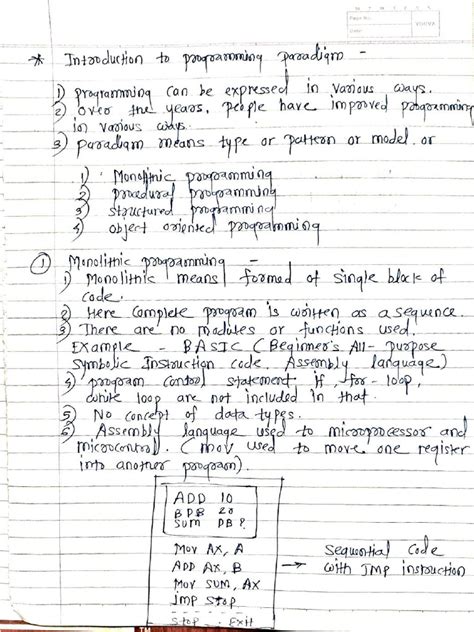 Page No.
Date
* Introduction to programming paradigm -
1) programming can be expressed in various ways.
2) over the years, people have improved programming
in various ways.
3) paradigm means type or pattern or model. or
1) Monolithic programming
2) procedural programming
3) structured programming
4) object oriented programming
① Monolithic programming -
1) Monolithic means formed of single block of
code.
2) Here complete program is written as a sequence.
3) There are no modules or functions used.
Example - BASIC (Beginner's All-purpose
Symbolic Instruction code. Assembly language)
4) program control statement if, for-loop,
while loop are not included in that.
5) No concept of data types.
6) Assembly language used to microprocessor and
microcontroll. (mov used to move one register
into another program).
ADD 10
BPB 20
SUM DB ?
Mov AX, A
ADD AX, B
Mov SUM, AX
Jmp Stop
Stop Exit
→ Sequential code
with JMP instruction